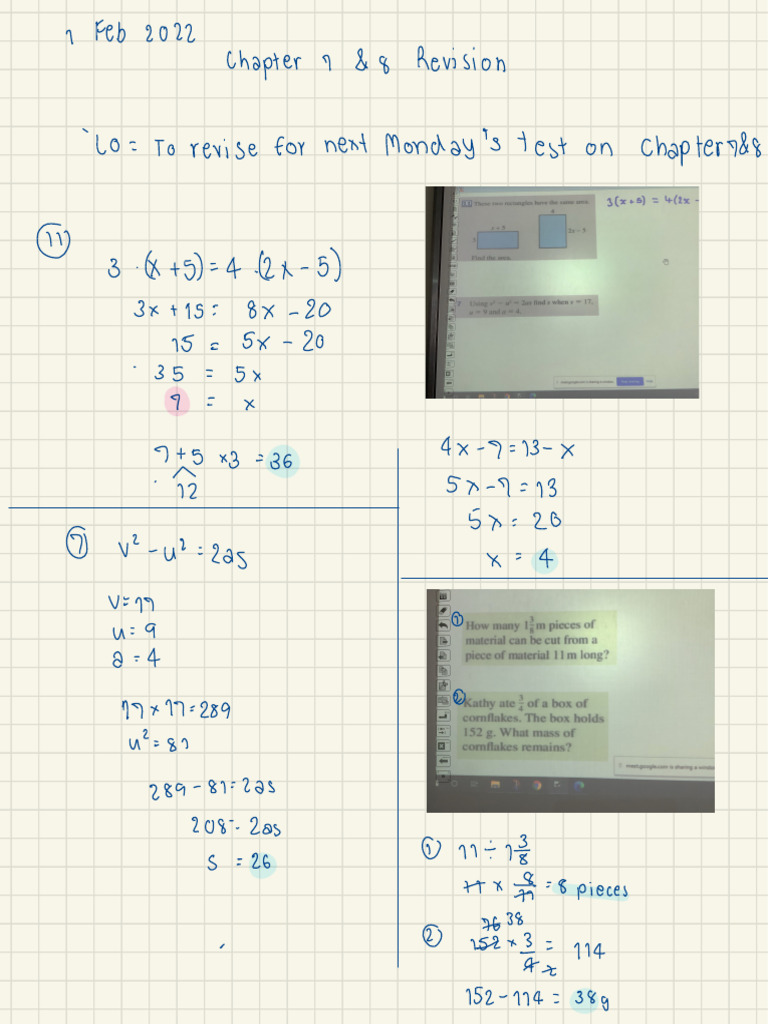 1 Feb 2022
Chapter 7 & 8 Revision
LO = To revise for next Monday's test on Chapter 7&8
These two rectangles have the same area.
3(x+5) = 4(2x -
x + 5
2x - 5
Find the area.
Using v² - u² = 2as find s when v = 17,
u = 9 and a = 4.
11
3 · (x + 5) = 4 · (2x - 5)
3x + 15 = 8x - 20
15 = 5x - 20
35 = 5x
7 = x
7 + 5 × 3 = 36
12
4x - 7 = 13 - x
5x - 7 = 13
5x = 20
x = 4
7
v² - u² = 2as
v = 17
u = 9
a = 4
17 × 17 = 289
u² = 81
289 - 81 = 2as
208 = 2as
s = 26
1
How many 1 3/8 m pieces of
material can be cut from a
piece of material 11 m long?
2
Kathy ate 3/4 of a box of
cornflakes. The box holds
152 g. What mass of
cornflakes remains?
meet.google.com is sharing a window
1
11 ÷ 1 3/8
11 × 8/11 = 8 pieces
2
76 38
152 × 3/4 = 114
2
152 - 114 = 38g